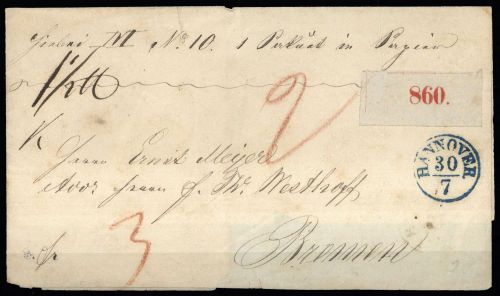 Hiebei M No. 10. 1 Packet in Papier
1 1/2 ℔
860.
2
HANNOVER
30/7
Herrn Ernst Meyer
Herrn J. Th. Westhoff
3
Bremen
fr